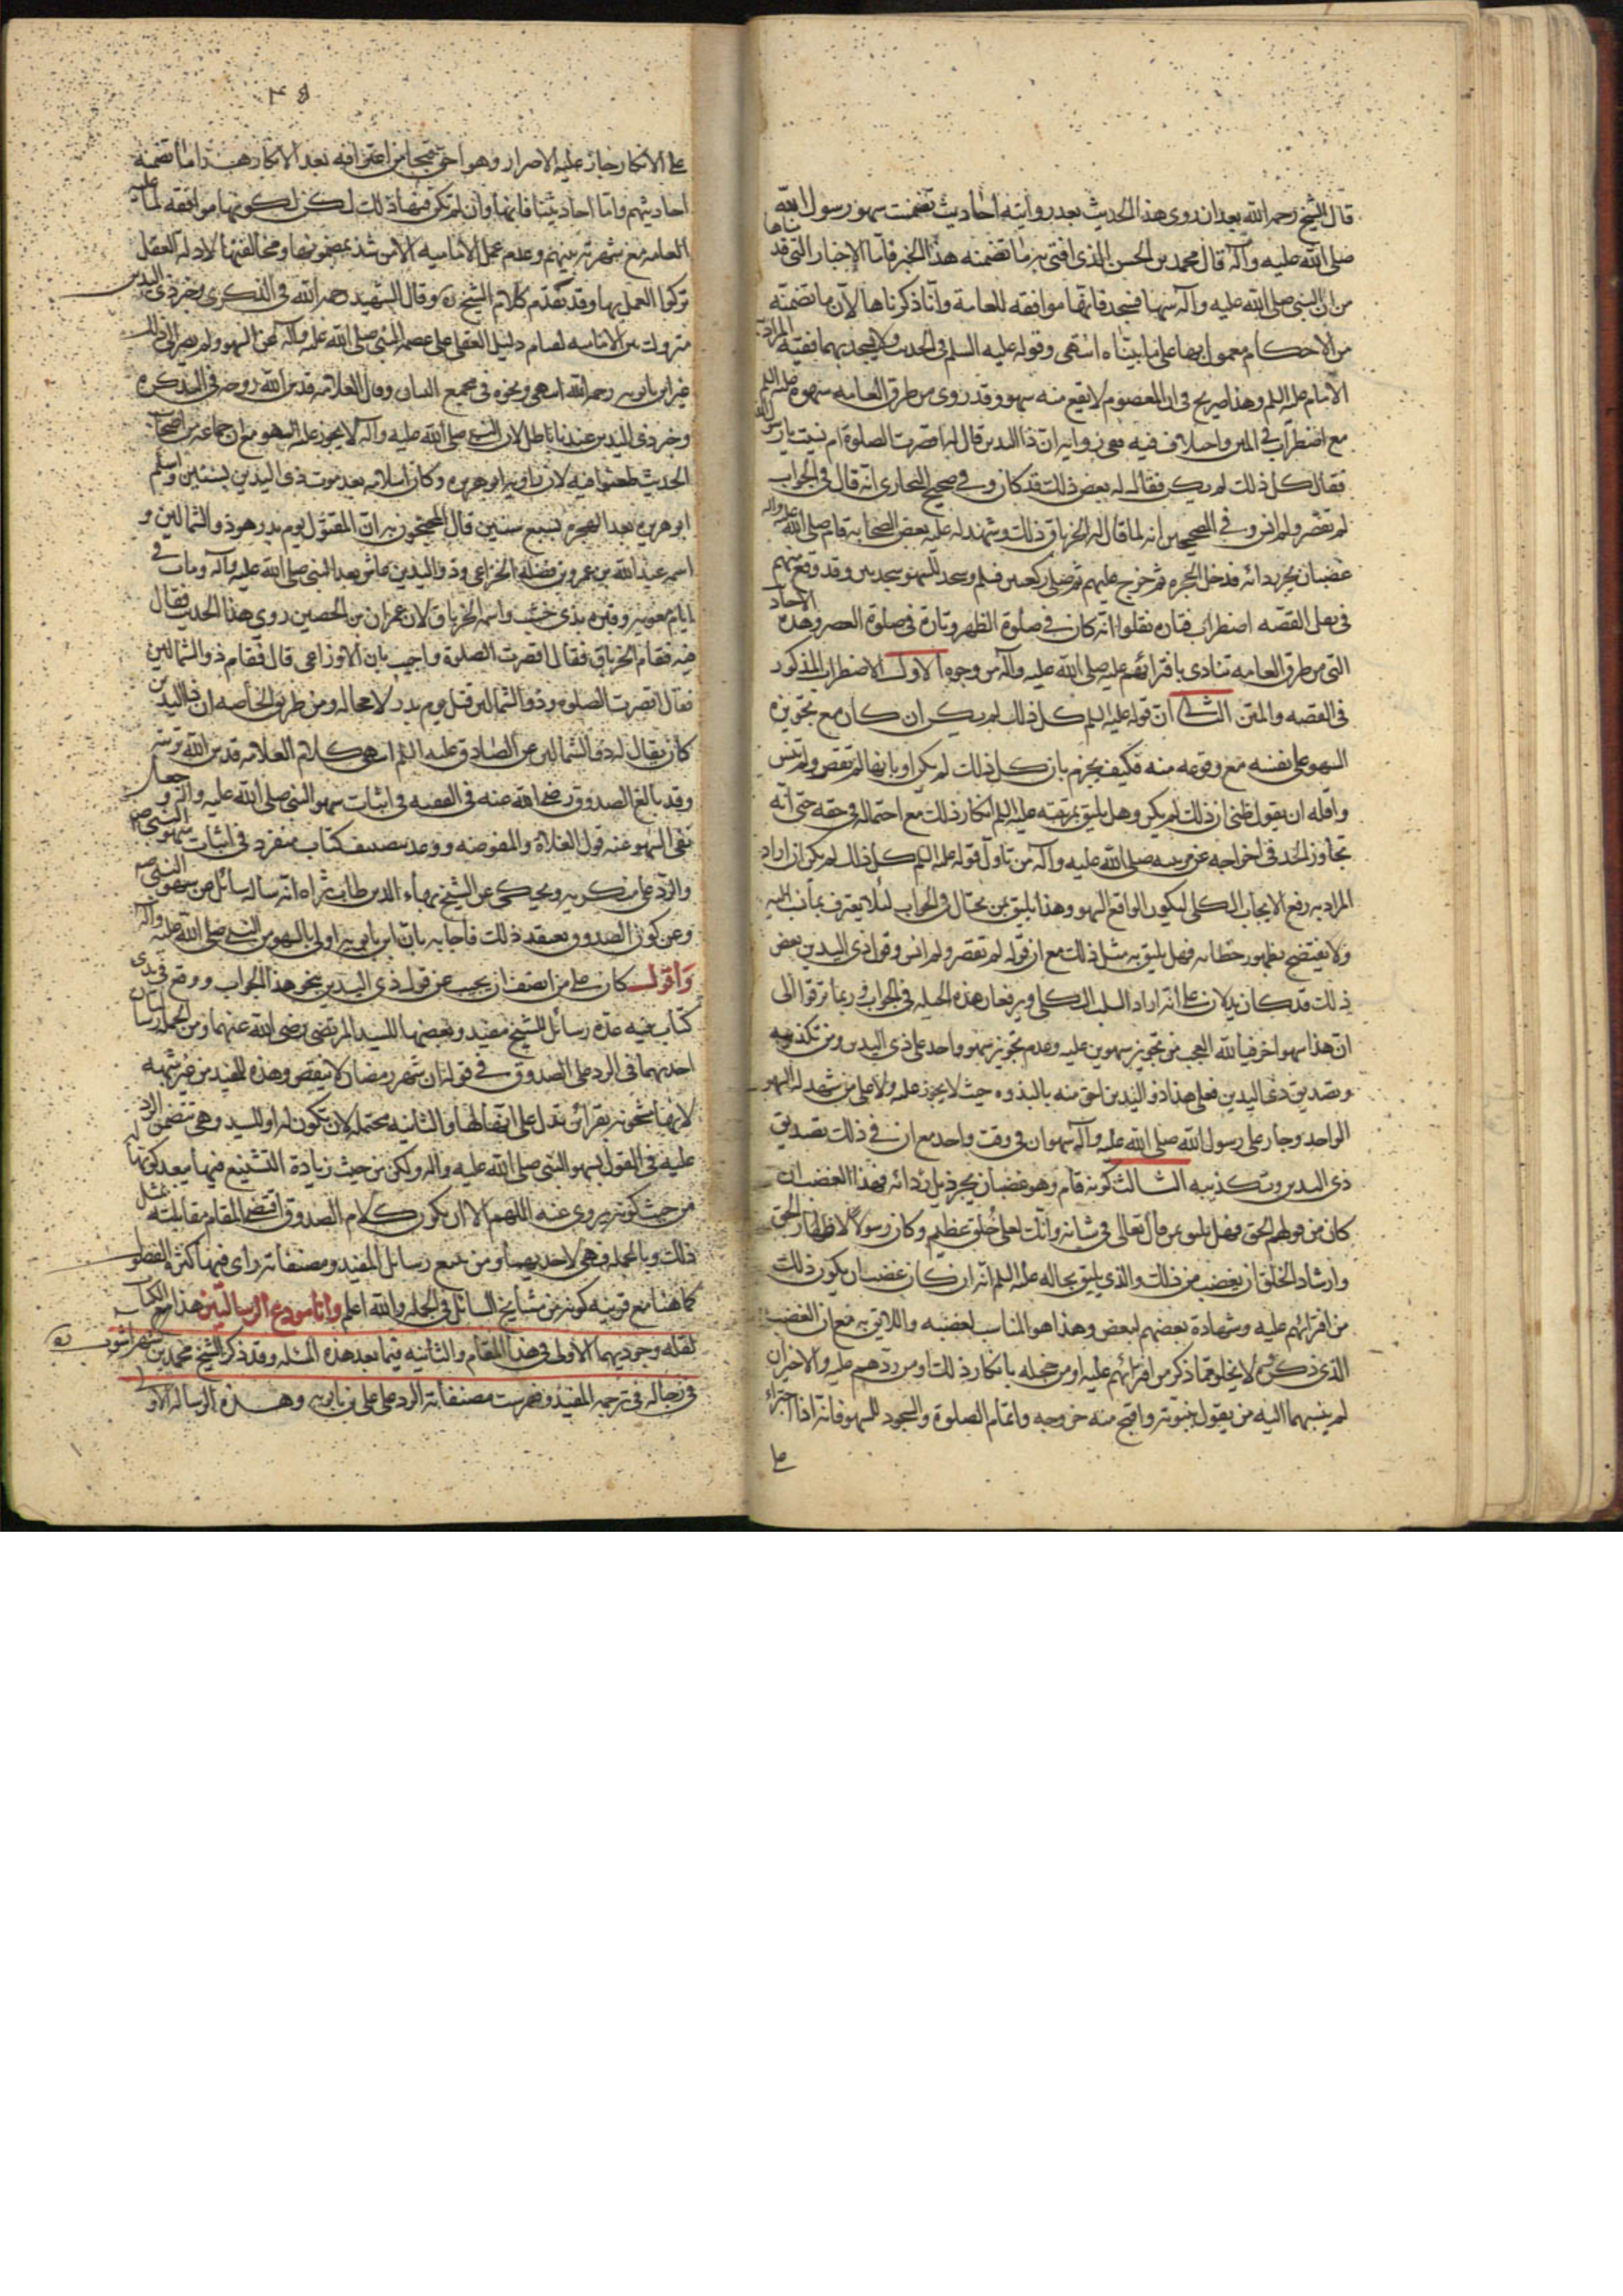 قال الشيخ رحمه الله بعد ان روى هذا الحديث بعد روايته احاديث تضمنت سهو رسول الله
صلى الله عليه وآله قال محمد بن الحسن الذي افتى به ما تضمنه هذا الخبر فاما الاخبار التي قدمناها
من ان النبي صلى الله عليه وآله سها فسجد فانها موافقه للعامة وانا ذكرناها لان ما تتضمنه
من الاحكام معمول بها على ما بيناه انتهى وقوله عليه السلم في الحديث ولا يسجدهما فقيه المراد به
الامام عليه السلم وهذا صريح في ان المعصوم لا يقع منه سهو وقد روى من طرق العامه سهوه عليه السلم
مع اضطراب في المتن واختلاف فيه ففي رواية ان ذا اليدين قال له اقصرت الصلوة ام نسيت يا رسول الله
فقال كل ذلك لم يكن فقال له بعض ذلك قد كان وفي صحيح البخاري انه قال في الجواب
لم تقصر ولم انس وفي الصحيحين انه لما قال له الخرباق ذلك وشهد له عليه بعض الصحابة قام صلى الله عليه وآله
غضبان يجر ردائه فدخل الحجره ثم خرج عليهم ثم صلى ركعتين فسلم وسجد للسهو سجدتين وقد وقع منهم
في نقل القصه اضطراب فتاره نقلوا انه كان في صلوة الظهر وتارة في صلوة العصر وهذه الاحاد
التي من طرق العامه تنادى بافترائهم عليه صلى الله عليه وآله من وجوه الاول الاضطراب المذكور
في القصه والمتن الثاني ان قوله عليه السلم كل ذلك لم يكن ان كان مع تجويزه
السهو على نفسه مع وقوعه منه فكيف يجزم بان كل ذلك لم يكن او بانها لم تقصر ولم تنس
واقله ان يقول ظني ان ذلك لم يكن وهل يليق بمرتبته عليه السلم انكار ذلك مع احتماله في حقه حتى انه
تجاوز الحد في اخراجه عن مرتبته صلى الله عليه وآله من تاول قوله عليه السلم كل ذلك لم يكن ان اراد
المراد به رفع الايجاب الكلي ليكون الواقع السهو وهذا يليق بمن يحتال في الجواب لئلا يعترف بما نسب اليه
ولا يفتضح بظهور خطائه فهل يليق به مثل ذلك مع ان قوله لم تقصر ولم انس وقول ذي اليدين بعض
ذلك قد كان يدلان على انه اراد السلب الكلي ويرفعان هذه الحيله في الجواب وربما ترقوا الى
ان هذا سهو اخر فيالله العجب من تجويز سهوين عليه وعدم تجويز سهو واحد على ذي اليدين ومن تكذيبه
وتصديق ذي اليدين فعلى هذا ذو اليدين احق منه بالنبوه حيث لا يجوز عليه ولا على من شهد له السهو
الواحد وجاز على رسول الله صلى الله عليه وآله سهوان في وقت واحد مع ان في ذلك تصديق
ذي اليدين وتكذيبه الثالث كونه قام وهو غضبان يجر ذيل ردائه فهذا الغضب ان
كان من قولهم الحق فهل يليق بمن قال تعالى في شانه وانك لعلى خلق عظيم وكان رسولا لاظهار الحق
وارشاد الخلق ان يغضب من ذلك والذي يليق بحاله عليه السلم انه ان كان غضب ان يكون ذلك
من افترائهم عليه وشهادة بعضهم لبعض وهذا هو المناسب لغضبه واللايق به مع ان الغضب
الذي ذكروه لا يخلو مما ذكر من افترائهم عليه او من خجله بانكار ذلك او من ردهم عليه والاخيران
لم ينسبهما اليه من يقول بنبوته واقبح منه خروجه واتمام الصلوة والسجود للسهو فانه اذا اجتراء
على
٤٥
على الانكار جاز عليه الاصرار وهو احق قبحا من اعترافه بعد الانكار هذا ما تضمنه
احاديثهم واما احاديثنا فانها وان لم تكن فيها ذلك لكن لكونها موافقه لما عليه
العامه مع شهرته بينهم وعدم عمل الاماميه الا من شذ بمضمونها ومخالفتها لادلة العقل
تركوا العمل بها وقد تقدم كلام الشيخ ره وقال الشهيد رحمه الله في الذكرى وخبر ذي اليدين
متروك بين الاماميه لقيام دليل العقل على عصمه النبي صلى الله عليه وآله عن السهو ولم يصر الى ذلك
غير ابن بابويه رحمه الله انتهى ونحوه في مجمع البيان وقال العلامه قدس الله روحه في التذكره
وخبر ذي اليدين عندنا باطل لان النبي صلى الله عليه وآله لا يجوز عليه السهو مع ان جماعه من اصحاب
الحديث طعنوا فيه لان راويه ابو هريره وكان اسلامه بعد موت ذي اليدين بسنتين واسلم
ابو هريره بعد الهجره بسبع سنين قال المحتجون به ان المقتول يوم بدر هو ذو الشمالين و
اسمه عبد الله بن عمرو بن نضلة الخزاعي وذو اليدين عاش بعد النبي صلى الله عليه وآله ومات في
ايام معويه وقبره بذي خشب واسمه الخرباق لان عمران بن الحصين روى هذا الحديث فقال
فيه فقام الخرباق فقال اقصرت الصلوة واجيب بان الاوزاعي قال فقام ذو الشمالين
فقال اقصرت الصلوه وذو الشمالين قتل يوم بدر لا محاله ومن طريق الخاصه ان ذا اليدين
كان يقال له ذو الشمالين عن الصادق عليه السلم انتهى كلام العلامه قدس الله تربته
وقد بالغ الصدوق رضي الله عنه في الفقيه في اثبات سهو النبي صلى الله عليه وآله و جعل
نفي السهو عنه قول الغلاة والمفوضه ووعد بتصنيف كتاب منفرد في اثبات سهو النبي ص
والرد على منكريه ويحكى عن الشيخ بهاء الدين طاب ثراه انه سأله سائل عن سهو النبي ص
وعن كون الصدوق يعتقد ذلك فاجابه بان ابن بابويه اولى بالسهو من النبي صلى الله عليه وآله
واقول كان على من انصف ان يجيب عن قول ذي اليدين بنحو هذا الجواب ووقع في يدى
كتاب فيه عدة رسائل للشيخ مفيد وبعضها للسيد المرتضى رضي الله عنهما ومن الجمله رسالتان
احديهما في الرد على الصدوق في قوله ان شهر رمضان لا ينقص وهذه للمفيد من غير شبهه
لانها مشحونه بقرائن تدل على انها له والثانيه محتمله لان تكون له او للسيد وهي تتضمن الرد
عليه في القول بسهو النبي صلى الله عليه وآله ولكن من حيث زيادة التشنيع فيها يبعد كونها له
من حيث كونه يروى عنه اللهم الا ان يكون كلام الصدوق اقتضى المقام مقابلته بمثل
ذلك وبالجمله فهي لاحديهما ومن تتبع رسائل المفيد ومصنفاته رأى فيها اكثر
كما هنا مع قرينه كونه من مشايخ السائل في الجمله والله اعلم وانا مودع الرسالتين هذا الكتاب
لقلة وجوديهما الاولى في هذا المقام والثانيه فيما بعد هذه المسئله وقد ذكر الشيخ محمد بن شهراشوب ره
في رجاله في ترجمه المفيد وفهرست مصنفاته الرد على علي بن بابويه وهذه الرسالة الاولى